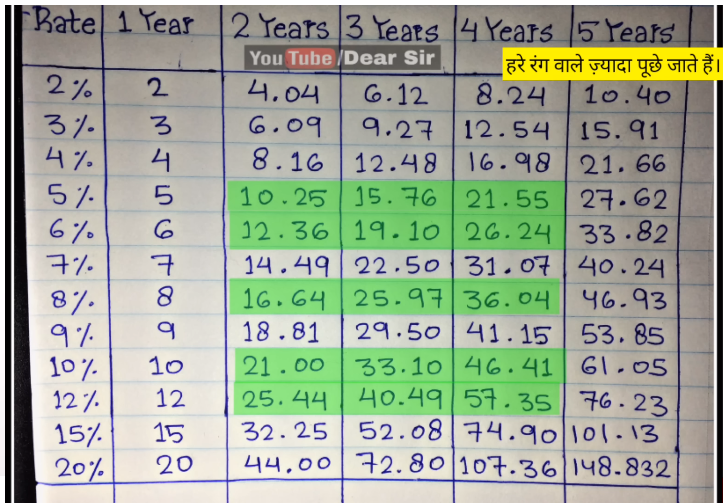 Rate 1 Year 2 Years 3 Years 4 Years 5 Years
YouTube/Dear Sir
हरे रंग वाले ज़्यादा पूछे जाते हैं।
2% 2 4.04 6.12 8.24 10.40
3% 3 6.09 9.27 12.54 15.91
4% 4 8.16 12.48 16.98 21.66
5% 5 10.25 15.76 21.55 27.62
6% 6 12.36 19.10 26.24 33.82
7% 7 14.49 22.50 31.07 40.24
8% 8 16.64 25.97 36.04 46.93
9% 9 18.81 29.50 41.15 53.85
10% 10 21.00 33.10 46.41 61.05
12% 12 25.44 40.49 57.35 76.23
15% 15 32.25 52.08 74.90 101.13
20% 20 44.00 72.80 107.36 148.832